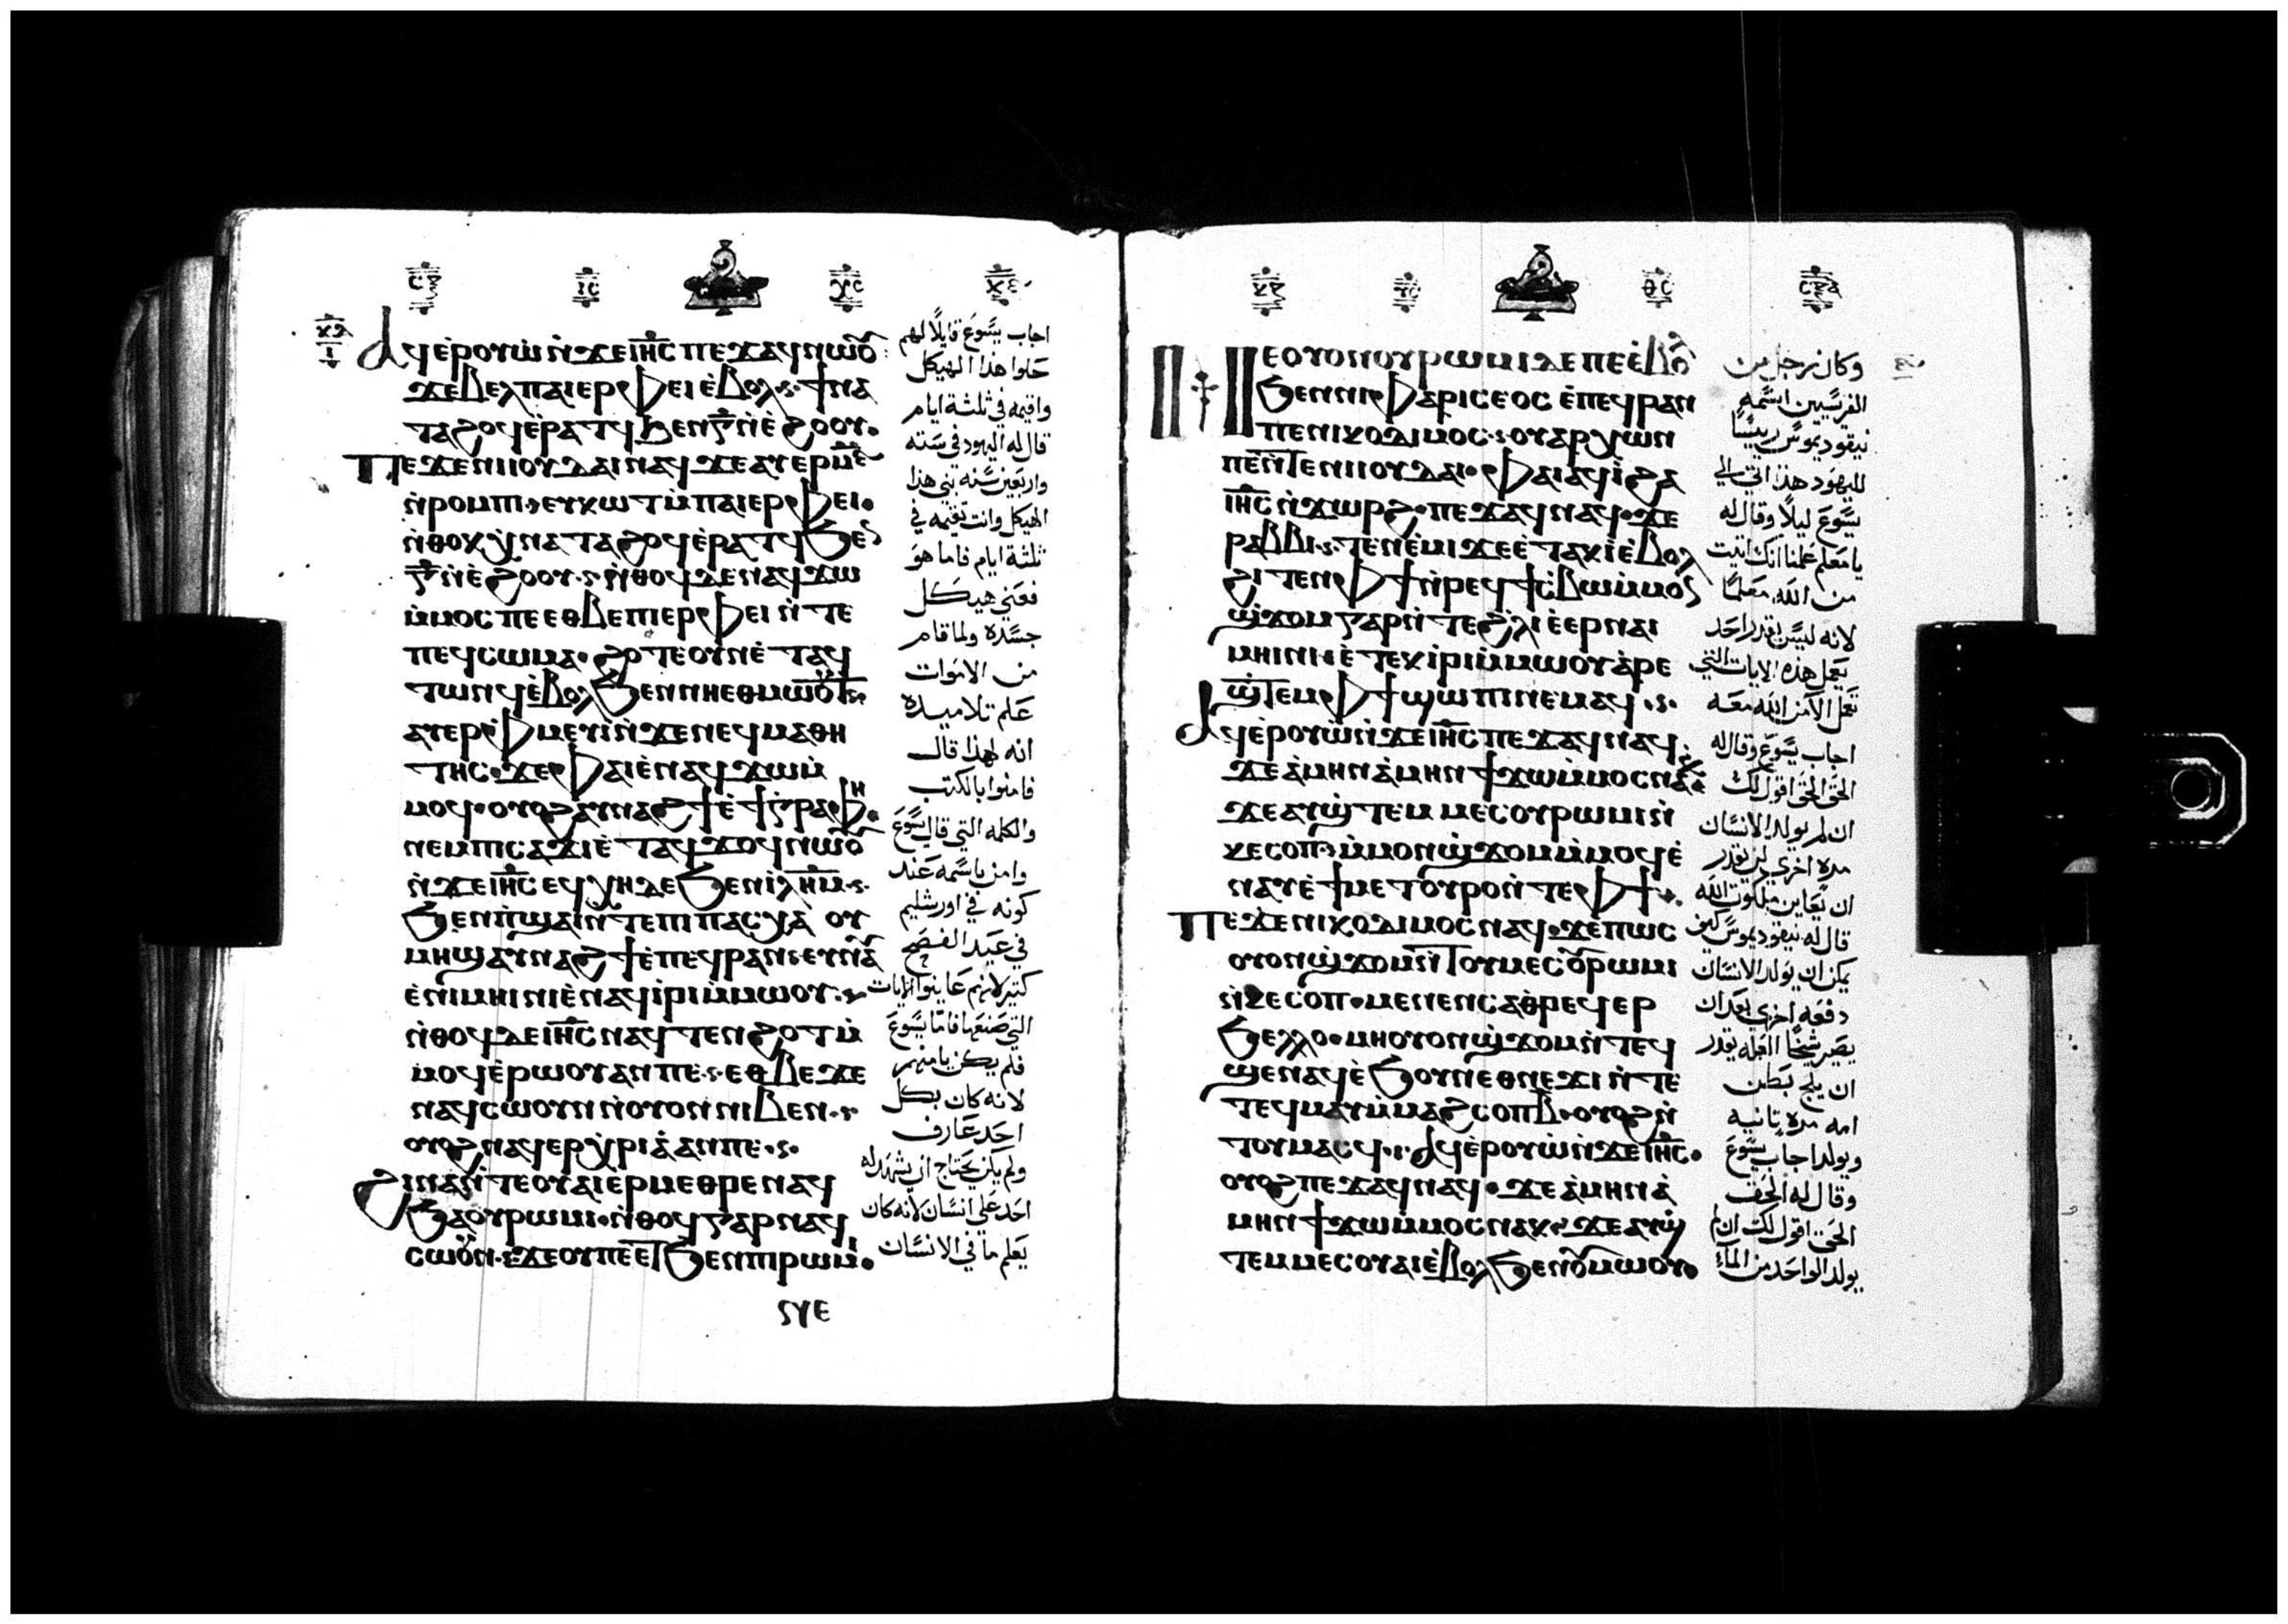 ⲁϥⲉ̀ⲣⲟⲩⲱ ⲛ̀ϫⲉ ⲓⲏⲥ ⲡⲉϫⲁϥ ⲛⲱⲟⲩ
ϫⲉ ⲃⲉⲗ ⲡⲁⲓⲉⲣⲫⲉⲓ ⲉ̀ⲃⲟⲗ ϯⲛⲁ
ⲧⲁϩⲟϥ ⲉ̀ⲣⲁⲧϥ ϧⲉⲛ ⲅ̅ ⲛ̀ⲉ̀ϩⲟⲟⲩ
ⲡⲉϫⲉ ⲛⲓⲓⲟⲩⲇⲁⲓ ⲛⲁϥ ϫⲉ ⲁⲩⲉⲣ ⲙ̅ⲋ̅
ⲛ̀ⲣⲟⲙⲡⲓ ⲉⲩⲕⲱⲧ ⲙ̀ⲡⲁⲓⲉⲣⲫⲉⲓ
ⲛ̀ⲑⲟⲕ ⲭⲛⲁⲧⲁϩⲟϥ ⲉ̀ⲣⲁⲧϥ ϧⲉⲛ
ⲅ̅ ⲛ̀ⲉ̀ϩⲟⲟⲩ ⲛ̀ⲑⲟϥ ⲇⲉ ⲛⲁϥϫⲱ
ⲙ̀ⲙⲟⲥ ⲡⲉ ⲉⲑⲃⲉ ⲡⲓⲉⲣⲫⲉⲓ ⲛ̀ⲧⲉ
ⲡⲉϥⲥⲱⲙⲁ ϩⲟⲧⲉ ⲟⲩⲛ ⲉ̀ⲧⲁϥ
ⲧⲱⲛϥ ⲉ̀ⲃⲟⲗ ϧⲉⲛ ⲛⲏⲉⲑⲙⲱⲟⲩⲧ
ⲁⲩⲉⲣⲫⲙⲉⲩⲓ̀ ⲛ̀ϫⲉ ⲛⲉϥⲙⲁⲑⲏ
ⲧⲏⲥ ϫⲉ ⲫⲁⲓ ⲉ̀ⲛⲁϥϫⲱ ⲙ̀
ⲙⲟϥ ⲟⲩⲟϩ ⲁⲩⲛⲁϩϯ ⲉ̀ϯⲅⲣⲁⲫⲏ
ⲛⲉⲙ ⲡⲓⲥⲁϫⲓ ⲉ̀ⲧⲁϥϫⲟϥ ⲛⲱⲟⲩ
ⲛ̀ϫⲉ ⲓⲏⲥ ⲉϥⲭⲏ ⲇⲉ ϧⲉⲛ ⲓ̀ⲗⲏⲙ
ϧⲉⲛ ⲡ̀ϣⲁⲓ ⲛ̀ⲧⲉ ⲡⲓⲡⲁⲥⲭⲁ ⲟⲩ
ⲙⲏϣ ⲁⲩⲛⲁϩϯ ⲉ̀ⲡⲉϥⲣⲁⲛ ⲉⲩⲛⲁⲩ
ⲉ̀ⲛⲓⲙⲏⲓⲛⲓ ⲉ̀ⲛⲁϥⲓ̀ⲣⲓ ⲙ̀ⲙⲱⲟⲩ
ⲛ̀ⲑⲟϥ ⲇⲉ ⲓⲏⲥ ⲛⲁϥⲧⲉⲛϩⲟⲧ ⲙ̀
ⲙⲟϥ ⲉ̀ⲣⲱⲟⲩ ⲁⲛ ⲡⲉ ⲉⲑⲃⲉ ϫⲉ
ⲛⲁϥⲥⲱⲟⲩⲛ ⲛ̀ⲟⲩⲟⲛ ⲛⲓⲃⲉⲛ
ⲟⲩⲟϩ ⲛⲁϥⲉⲣⲭⲣⲓⲁ̀ ⲁⲛ ⲡⲉ
ϩⲓⲛⲁ ⲛ̀ⲧⲉ ⲟⲩⲁⲓ ⲉⲣⲙⲉⲑⲣⲉ ⲛⲁϥ
ϧⲁ ⲟⲩⲣⲱⲙⲓ ⲛ̀ⲑⲟϥ ⲅⲁⲣ ⲛⲁϥ
ⲥⲱⲟⲩⲛ ϫⲉ ⲟⲩ ⲡⲉⲧ ϧⲉⲛ ⲡⲓⲣⲱⲙⲓ
اجاب يسوع قايلا لهم
حلوا هذا الهيكل
واقيمه في ثلثة ايام
قال له اليهود في سته
واربعين سنه بني هذا
الهيكل وانت تقيمه في
ثلثة ايام فاما هو
فعني هيكل
جسده ولما قام
من الاموات
علم تلاميده
انه لهذا قال
فامنوا بالكتب
والكلمه التي قال يسوع
وامن باسمه عند
كونه في اورشليم
في عيد الفصح
كتير لانهم عاينوا الايات
التي صنعها فاما يسوع
فلم يكن يامنهم
لانه كان بكل
احد عارف
ولم يكن يحتاج ان يشهد له
احد علي انسان لانه كان
يعلم ما في الانسان
ⲛⲉ ⲟⲩⲟⲛ ⲟⲩⲣⲱⲙⲓ ⲇⲉ ⲡⲉ ⲉ̀ⲃⲟⲗ
ϧⲉⲛ ⲛⲓⲫⲁⲣⲓⲥⲉⲟⲥ ⲉ̀ⲡⲉϥⲣⲁⲛ
ⲡⲉ ⲛⲓⲕⲟⲇⲓⲙⲟⲥ ⲟⲩⲁⲣⲭⲱⲛ
ⲡⲉ ⲛ̀ⲧⲉ ⲛⲓⲓⲟⲩⲇⲁⲓ ⲫⲁⲓ ⲁϥⲓ̀ ϩⲁ
ⲓⲏⲥ ⲛ̀ϫⲱⲣϩ ⲡⲉϫⲁϥ ⲛⲁϥ ϫⲉ
ⲣⲁⲃⲃⲓ ⲧⲉⲛⲉ̀ⲙⲓ ϫⲉ ⲉ̀ⲧⲁⲕⲓ̀ ⲉ̀ⲃⲟⲗ
ϩⲓⲧⲉⲛ ⲫϯ ⲛ̀ⲣⲉϥϯⲥⲃⲱ ⲙ̀ⲙⲟⲛ
ϣϫⲟⲙ ⲅⲁⲣ ⲛ̀ⲧⲉ ϩⲗⲓ ⲉ̀ⲉⲣ ⲛⲁⲓ
ⲙⲏⲓⲛⲓ ⲉ̀ⲧⲉⲕⲓ̀ⲣⲓ ⲙ̀ⲙⲱⲟⲩ ⲁ̀ⲣⲉ
ϣ̀ⲧⲉⲙ ⲫϯ ϣⲱⲡⲓ ⲛⲉⲙⲁϥ
ⲁϥⲉ̀ⲣⲟⲩⲱ̀ ⲛ̀ϫⲉ ⲓⲏⲥ ⲡⲉϫⲁϥ ⲛⲁϥ
ϫⲉ ⲁ̀ⲙⲏⲛ ⲁ̀ⲙⲏⲛ ϯϫⲱ ⲙ̀ⲙⲟⲥ ⲛⲁⲕ
ϫⲉ ⲁⲩϣ̀ⲧⲉⲙⲙⲉⲥ ⲟⲩⲣⲱⲙⲓ ⲛ̀
ⲕⲉⲥⲟⲡ ⲙ̀ⲙⲟⲛ ϣϫⲟⲙ ⲙ̀ⲙⲟϥ ⲉ̀
ⲛⲁⲩ ⲉ̀ϯⲙⲉⲧⲟⲩⲣⲟ ⲛ̀ⲧⲉ ⲫϯ
ⲡⲉϫⲉ ⲛⲓⲕⲟⲇⲓⲙⲟⲥ ⲛⲁϥ ϫⲉ ⲡⲱⲥ
ⲟⲩⲟⲛ ϣϫⲟⲙ ⲛ̀ⲧⲟⲩⲙⲉⲥ ⲟⲩⲣⲱⲙⲓ
ⲛ̀ⲕⲉⲥⲟⲡ ⲙⲉⲛⲉⲛⲥⲁ ⲑⲣⲉϥⲉⲣ
ϧⲉⲗⲗⲟ ⲙⲏ ⲟⲩⲟⲛ ϣϫⲟⲙ ⲛ̀ⲧⲉϥ
ϣⲉⲛⲁϥ ⲉ̀ϧⲟⲩⲛ ⲉ̀ⲑⲛⲉϫⲓ ⲛ̀ⲧⲉ
ⲧⲉϥⲙⲁⲩ ⲙ̀ⲙⲁϩⲥⲟⲡ ⲃ̅ ⲟⲩⲟϩ ⲛ̀
ⲧⲟⲩⲙⲁⲥϥ ⲁϥⲉ̀ⲣⲟⲩⲱ̀ ⲛ̀ϫⲉ ⲓⲏⲥ
ⲟⲩⲟϩ ⲡⲉϫⲁϥ ⲛⲁϥ ϫⲉ ⲁ̀ⲙⲏⲛ ⲁ̀
ⲙⲏⲛ ϯϫⲱ ⲙ̀ⲙⲟⲥ ⲛⲁⲕ ϫⲉ ⲁⲩϣ̀
ⲧⲉⲙⲙⲉⲥ ⲟⲩⲁⲓ ⲉ̀ⲃⲟⲗ ϧⲉⲛ ⲟⲩⲙⲱⲟⲩ
وكان رجل من
الفريسيين اسمه
نيقوديموس رييسا
لليهود هذا اتي الي
يسوع ليلا وقال له
يا معلم علمنا انك اتيت
من الله معلما
لانه ليس يقدر احد
يعمل هذه الايات التي
تعمل الا من الله معه
اجاب يسوع وقال له
الحق الحق اقول لك
ان لم يولد الانسان
مره اخري لن يقدر
ان يعاين ملكوت الله
قال له نيقوديموس كيف
يمكن ان يولد الانسان
دفعه اخري بعد ان
يصير شيخا العله يقدر
ان يلج بطن
امه مره تانيه
ويولد اجاب يسوع
وقال له الحق
الحق اقول لك ان لم
يولد الواحد من الما